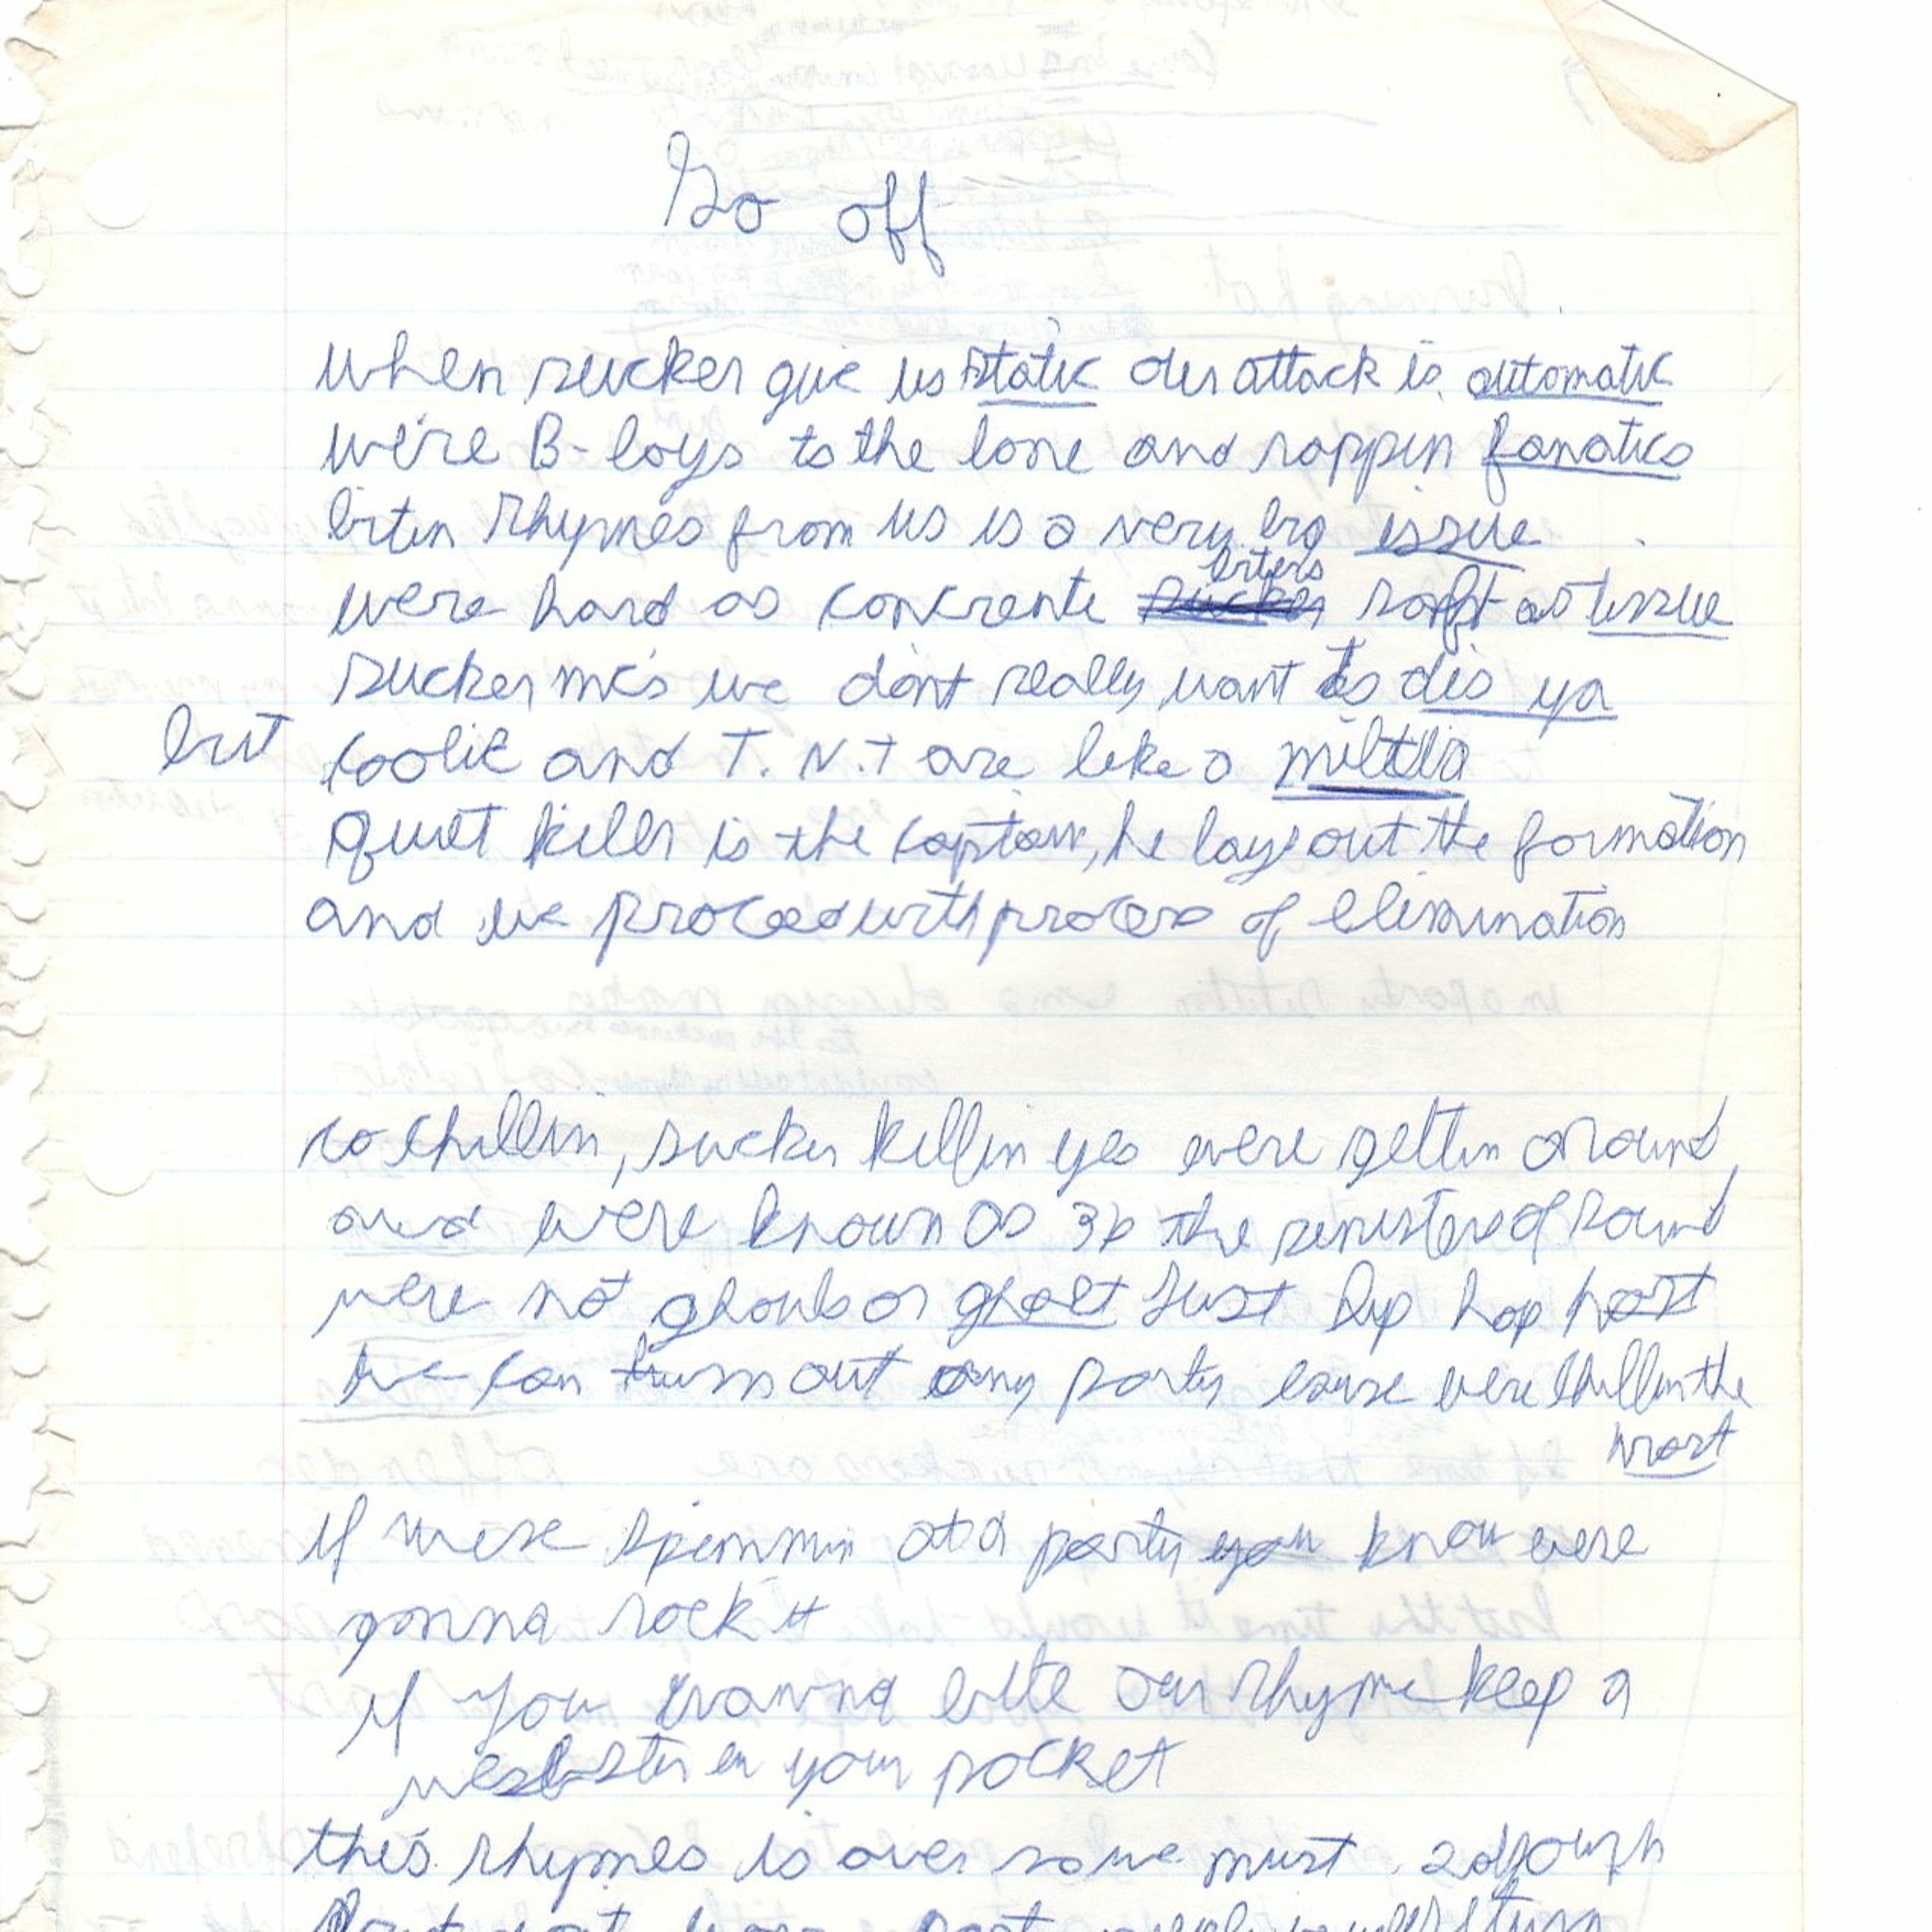 Go off
when sucker give us static our attack is automatic
we're B-boys to the bone and rappin fanatics
biten rhymes from us is a very big issue
biters
were hard as concrente sucker soft as tissue
sucker mc's we don't really want to dis ya
but coolie and T.N.T are like a militia
quiet killer is the captain, he lays out the formation
and we proceed with process of elimination
so chillin, sucker killin yes were gettin around,
and were known as 3b the ministers of sound
were not ghouls or ghost Just hip hop host
we can turn out any party cause were chillin the
most
If were spinnin at a party you know were
gonna rock it
if you wanna bite our rhyme keep a
webster in your pocket
this rhymes is over so we must